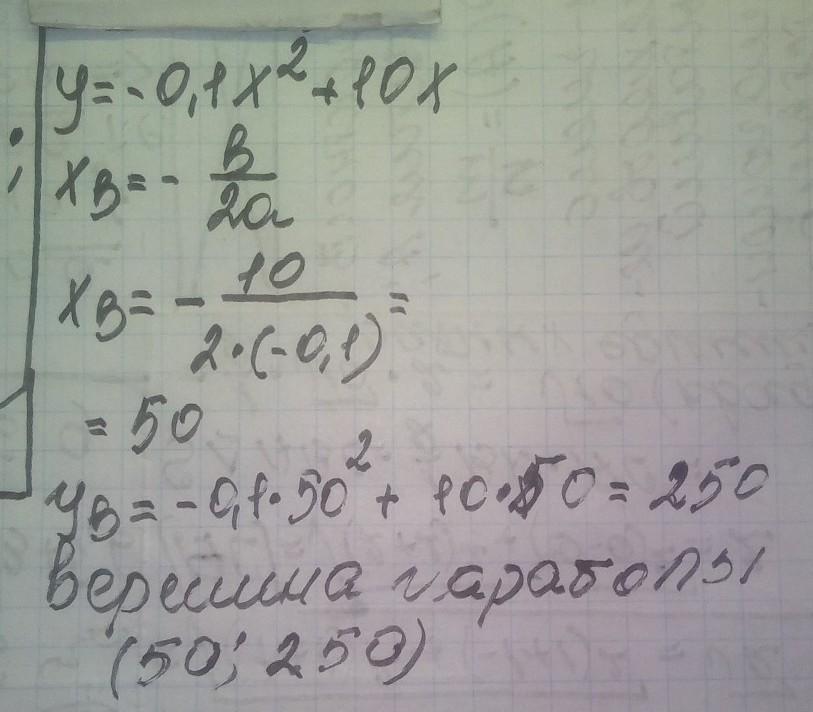 y=-0,1x²+10x
xв=- в/2a
xв= - 10/2·(-0,1) =
= 50
yв=-0,1·50²+ 10·50= 250
вершина параболы
(50; 250)